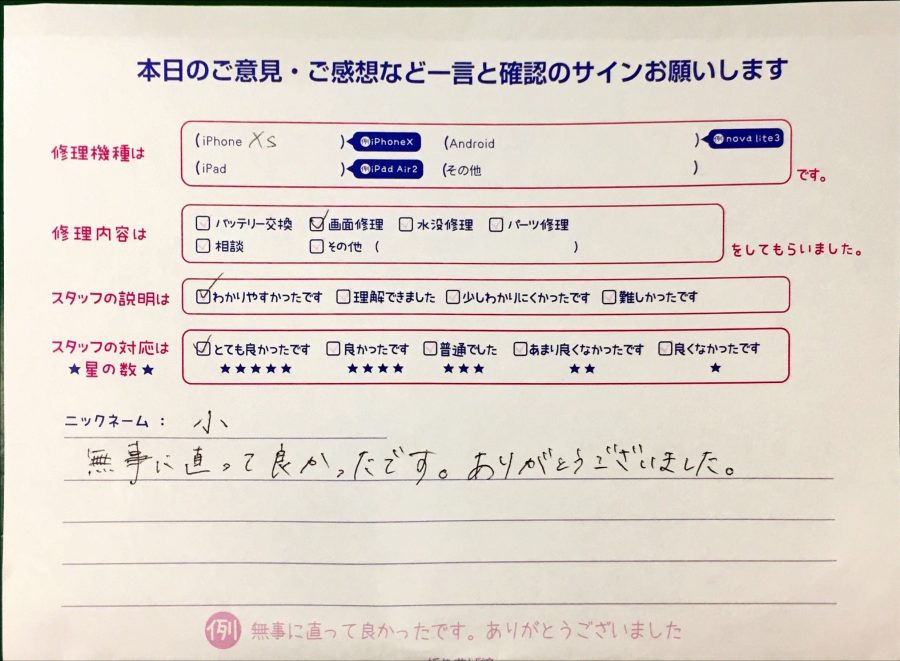 本日のご意見・ご感想など一言と確認のサインお願いします
修理機種は (iPhone XS ) 例iPhoneX (Android ) 例nova lite3
(iPad ) 例iPad Air2 (その他 ) です。
修理内容は □バッテリー交換 ☑画面修理 □水没修理 □パーツ修理
□相談 □その他 ( ) をしてもらいました。
スタッフの説明は ☑わかりやすかったです □理解できました □少しわかりにくかったです □難しかったです
スタッフの対応は ☑とても良かったです □良かったです □普通でした □あまり良くなかったです □良くなかったです
★星の数★ ★★★★★ ★★★★ ★★★ ★★ ★
ニックネーム： 小
無事に直って良かったです。ありがとうございました。
例 無事に直って良かったです。ありがとうございました